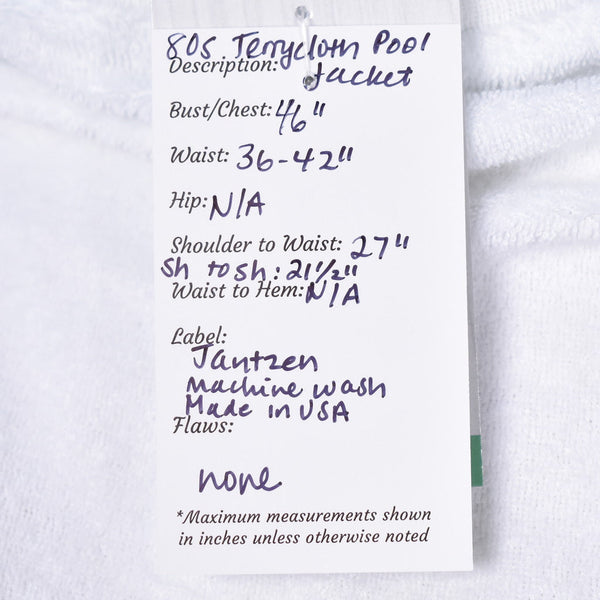 80s Terrycloth Pool
Description: Jacket
Bust/Chest: 46"
Waist: 36-42"
Hip: N/A
Shoulder to Waist: 27"
Sh to sh: 21 1/2"
Waist to Hem: N/A
Label:
Jantzen
machine wash
Made in USA
Flaws:
none
*Maximum measurements shown
in inches unless otherwise noted